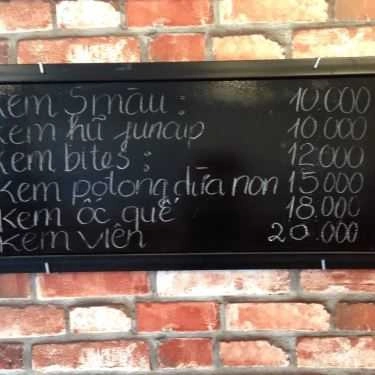 Kem 5 màu : 10.000
Kem hũ juncup 10.000
Kem bites : 12.000
Kem polong dừa non 15.000
Kem ốc quế 18.000
Kem viên 20.000